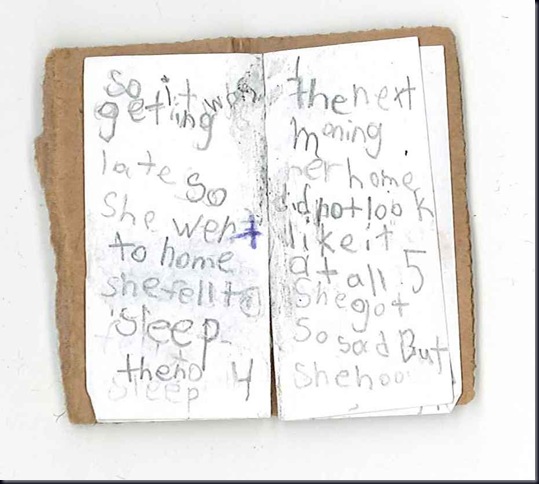 So it wen
getting
late So
She went
to home
she fell to
sleep
then to 4
sleep
the next
moning
her home
did not look
like it
at all 5
She got
so sad But
she hoo